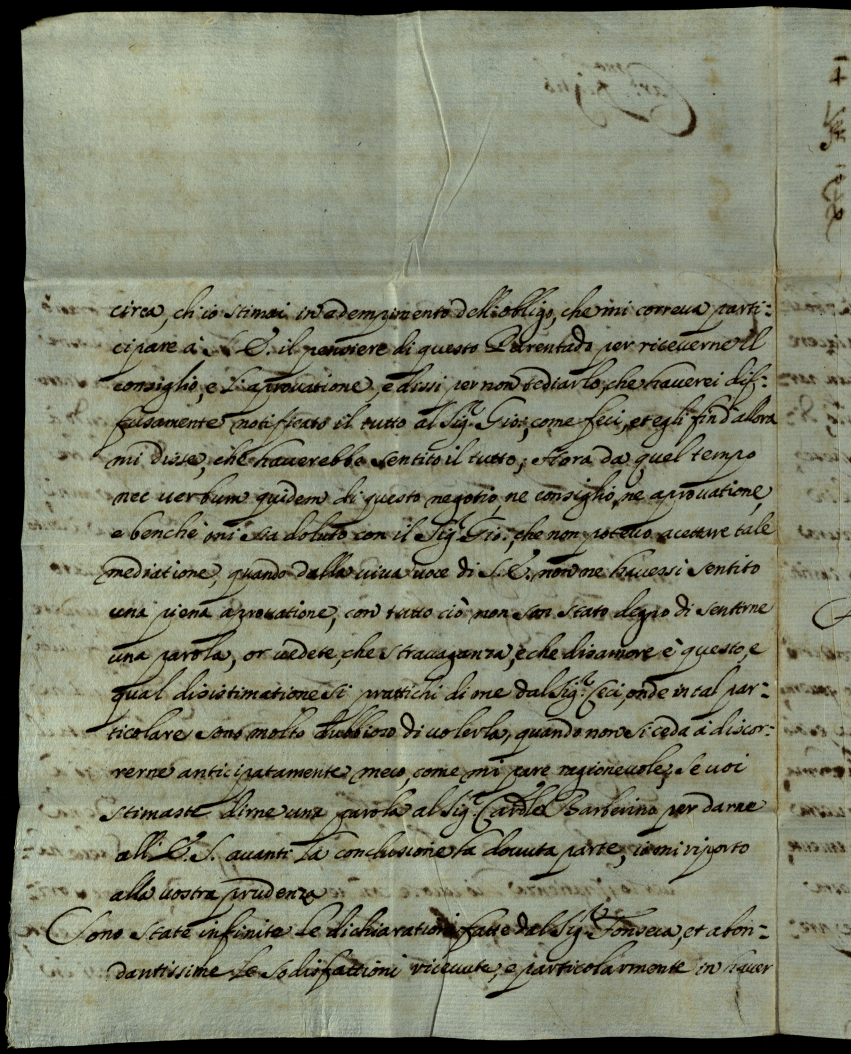 circa, ch'io stimai in adempimento dell'obligo, che mi correva parti-
cipare à S. E. il pensiere di questo Parentado per riceverne il
consiglio, e l'aprovatione, e dissi per non tediarlo, che haverei dif-
fusamente notificato il tutto al Sig.r Gio:, come feci, et egli fin d'allora
mi disse, che haverebbe sentito il tutto; Hora da quel tempo
nec verbum quidem di questo negotio, ne consiglio, ne aprovatione,
e benche mi sia doluto con il Sig.r Gio:, che non potevo accettare tale
mediatione, quando dalla viva voce di S. E. non ne havessi sentito
una piena aprovatione, con tutto ciò non son stato degno di sentirne
una parola, or vedete, che stravaganza, e che disamore è questo, e
qual disistimatione si prattichi di me dal Sig.r Ceci, onde in tal par-
ticolare sono molto dubbioso di volerla, quando non si ceda à discor-
rerne anticipatamente meco, come mi pare ragionevole; Se voi
stimaste dirne una parola al Sig.r Card.le Barberino per darne
all'E. S. avanti la conclusione la dovuta parte, io mi riporto
alla vostra prudenza
Sono state infinite le dichiarationi fatte dal Sig.r Fonseca, et abon-
dantissime le sodisfattioni ricevute, e particolarmente in haver